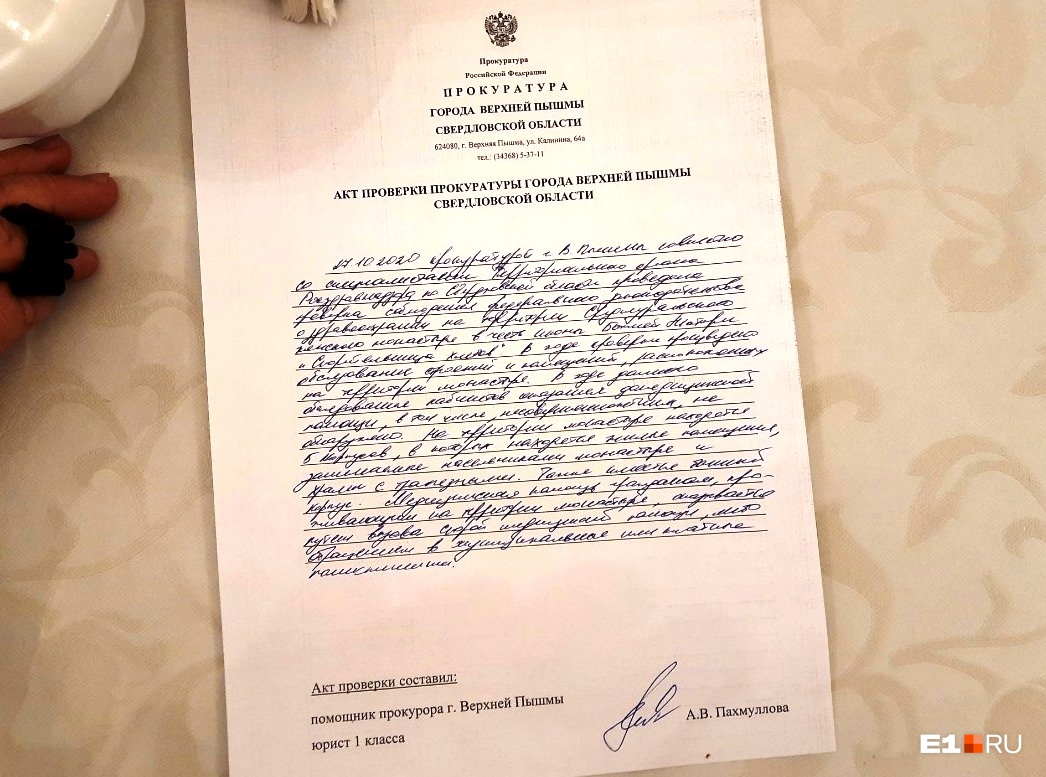 Прокуратура
Российской Федерации
ПРОКУРАТУРА
ГОРОДА ВЕРХНЕЙ ПЫШМЫ
СВЕРДЛОВСКОЙ ОБЛАСТИ
624080, г. Верхняя Пышма, ул. Калинина, 64а
тел.: (34368) 5-37-11
АКТ ПРОВЕРКИ ПРОКУРАТУРЫ ГОРОДА ВЕРХНЕЙ ПЫШМЫ
СВЕРДЛОВСКОЙ ОБЛАСТИ
27.10.2020 прокуратурой г. В. Пышмы совместно
со специалистами Территориального органа
Росздравнадзора по Свердловской области проведена
проверка соблюдения федерального законодательства
о здравоохранении на территории Среднеуральского
женского монастыря в честь иконы Божией Матери
"Спорительница хлебов". В ходе проверки проведено
обследование строений и помещений, расположенных
на территории монастыря. В ходе данного
обследования кабинетов оказания медицинской
помощи, в том числе, несовершеннолетним, не
обнаружено. На территории монастыря находятся
5 корпусов, в которых находятся жилые помещения,
занимаемые насельниками монастыря и
храмы с трапезными. Также имеется
корпус. Медицинская помощь гражданам, про-
живающим на территории монастыря, оказывается
путем вызова скорой медицинской помощи, либо
обращением в муниципальные или платные
поликлиники.
Акт проверки составил:
помощник прокурора г. Верхней Пышмы
юрист 1 класса
А.В. Пахмуллова
E1.RU